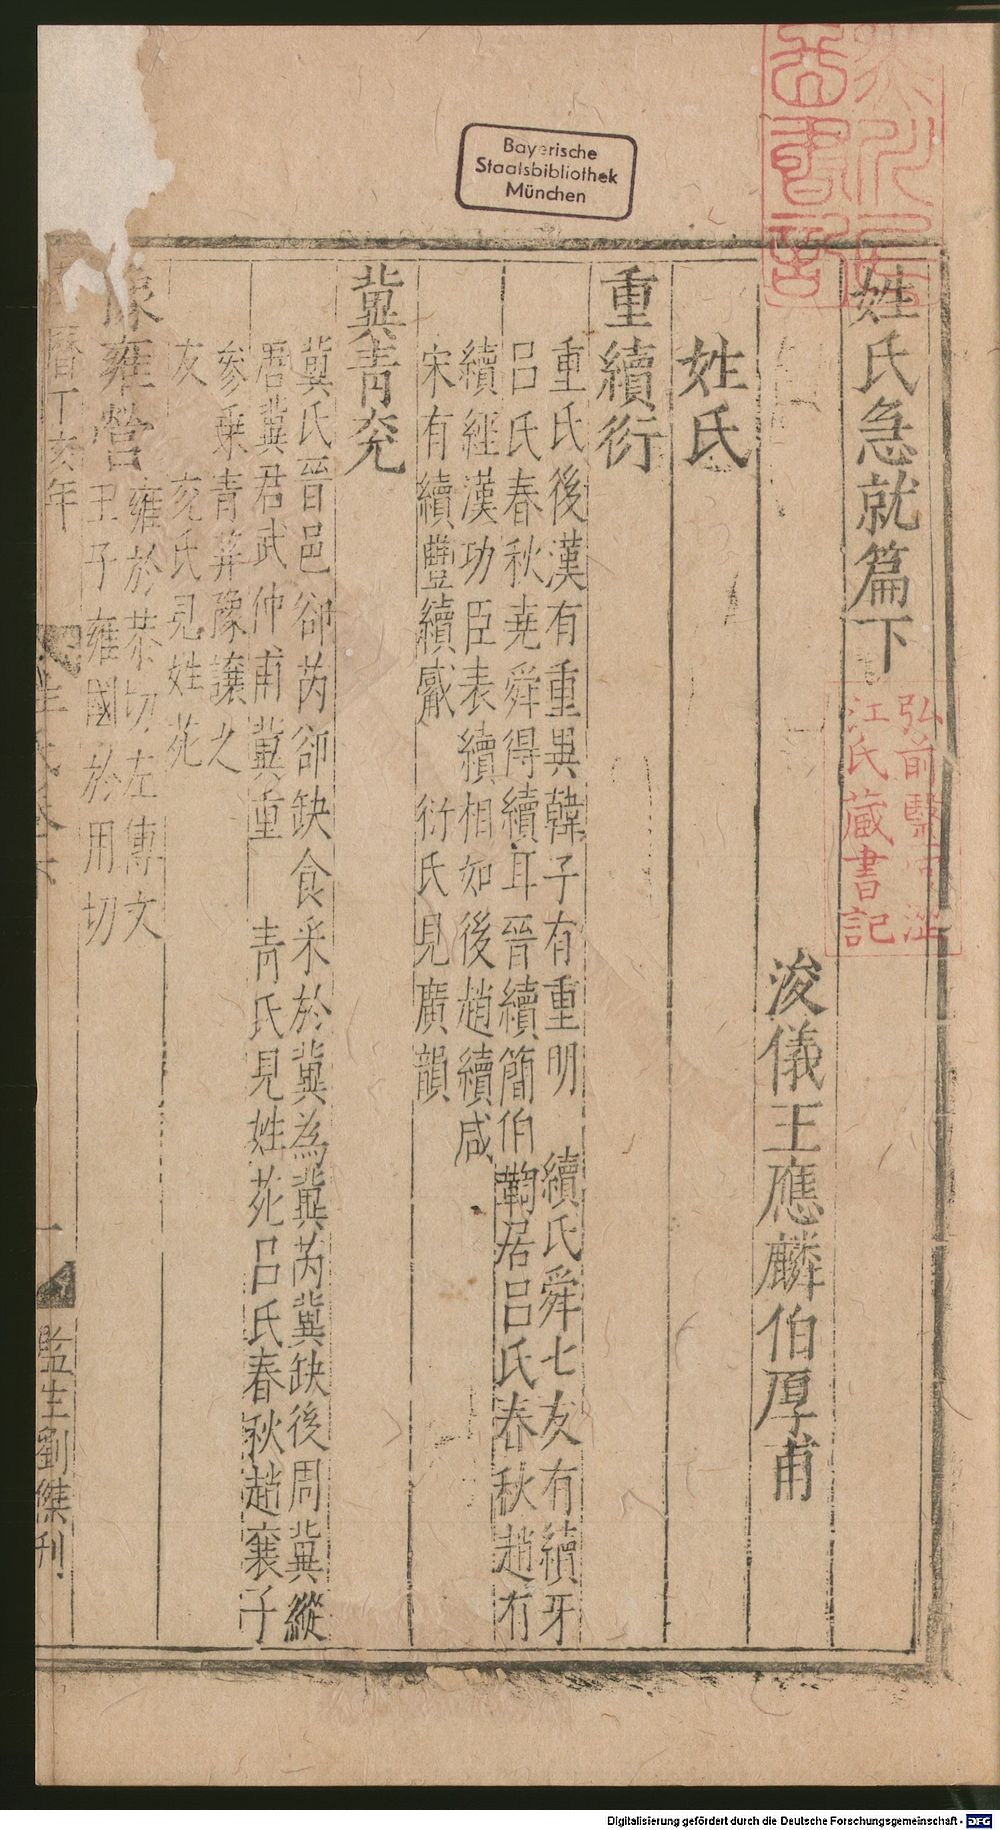 姓氏急就篇下
浚儀王應麟伯厚甫
姓氏
重續衍
重氏後漢有重異韓子有重明　續氏舜七友有續牙
呂氏春秋堯舜得續耳晉續簡伯鞫居呂氏春秋趙有
續經漢功臣表續相如後趙續咸
宋有續豐續嚴　衍氏見廣韻
冀青兖
冀氏晉邑郤芮郤缺食采於冀為冀芮冀缺後周冀縱
唐冀君武仲甫冀重　青氏見姓苑呂氏春秋趙襄子
參乗青荓豫讓之
友　兖氏見姓苑
豫雍營
雍於恭切左傳文
王子雍國於用切
暦丁亥年
一
監生劉傑刋
弘前醫官澁
江氏藏書記
書
Bayerische
Staatsbibliothek
München
Digitalisierung gefördert durch die Deutsche Forschungsgemeinschaft - DFG